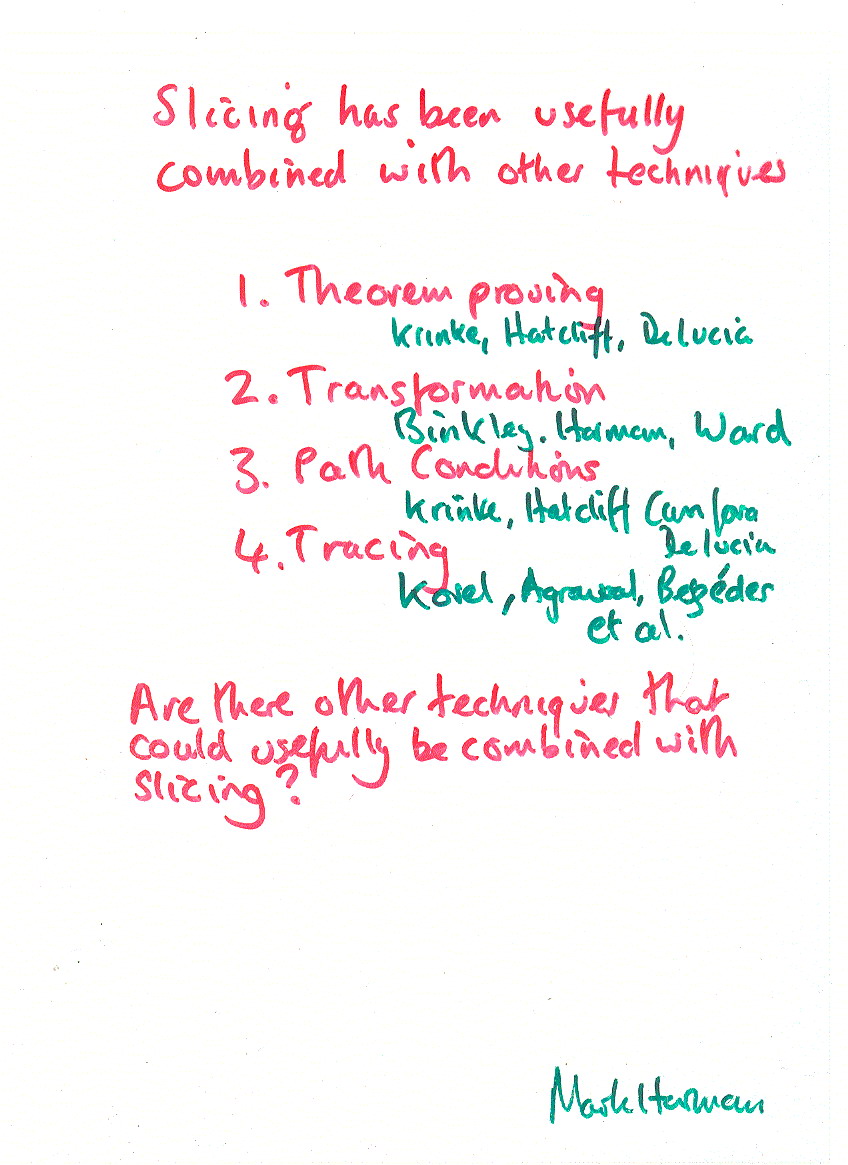 Slicing has been usefully
combined with other techniques
1. Theorem proving
Krinke, Hatcliff, De Lucia
2. Transformation
Binkley, Harman, Ward
3. Path Conditions
Krinke, Hatcliff Canfora
De Lucia
4. Tracing
Korel, Agrawal, Beszédes
et al.
Are there other techniques that
could usefully be combined with
slicing?
Mark Harman